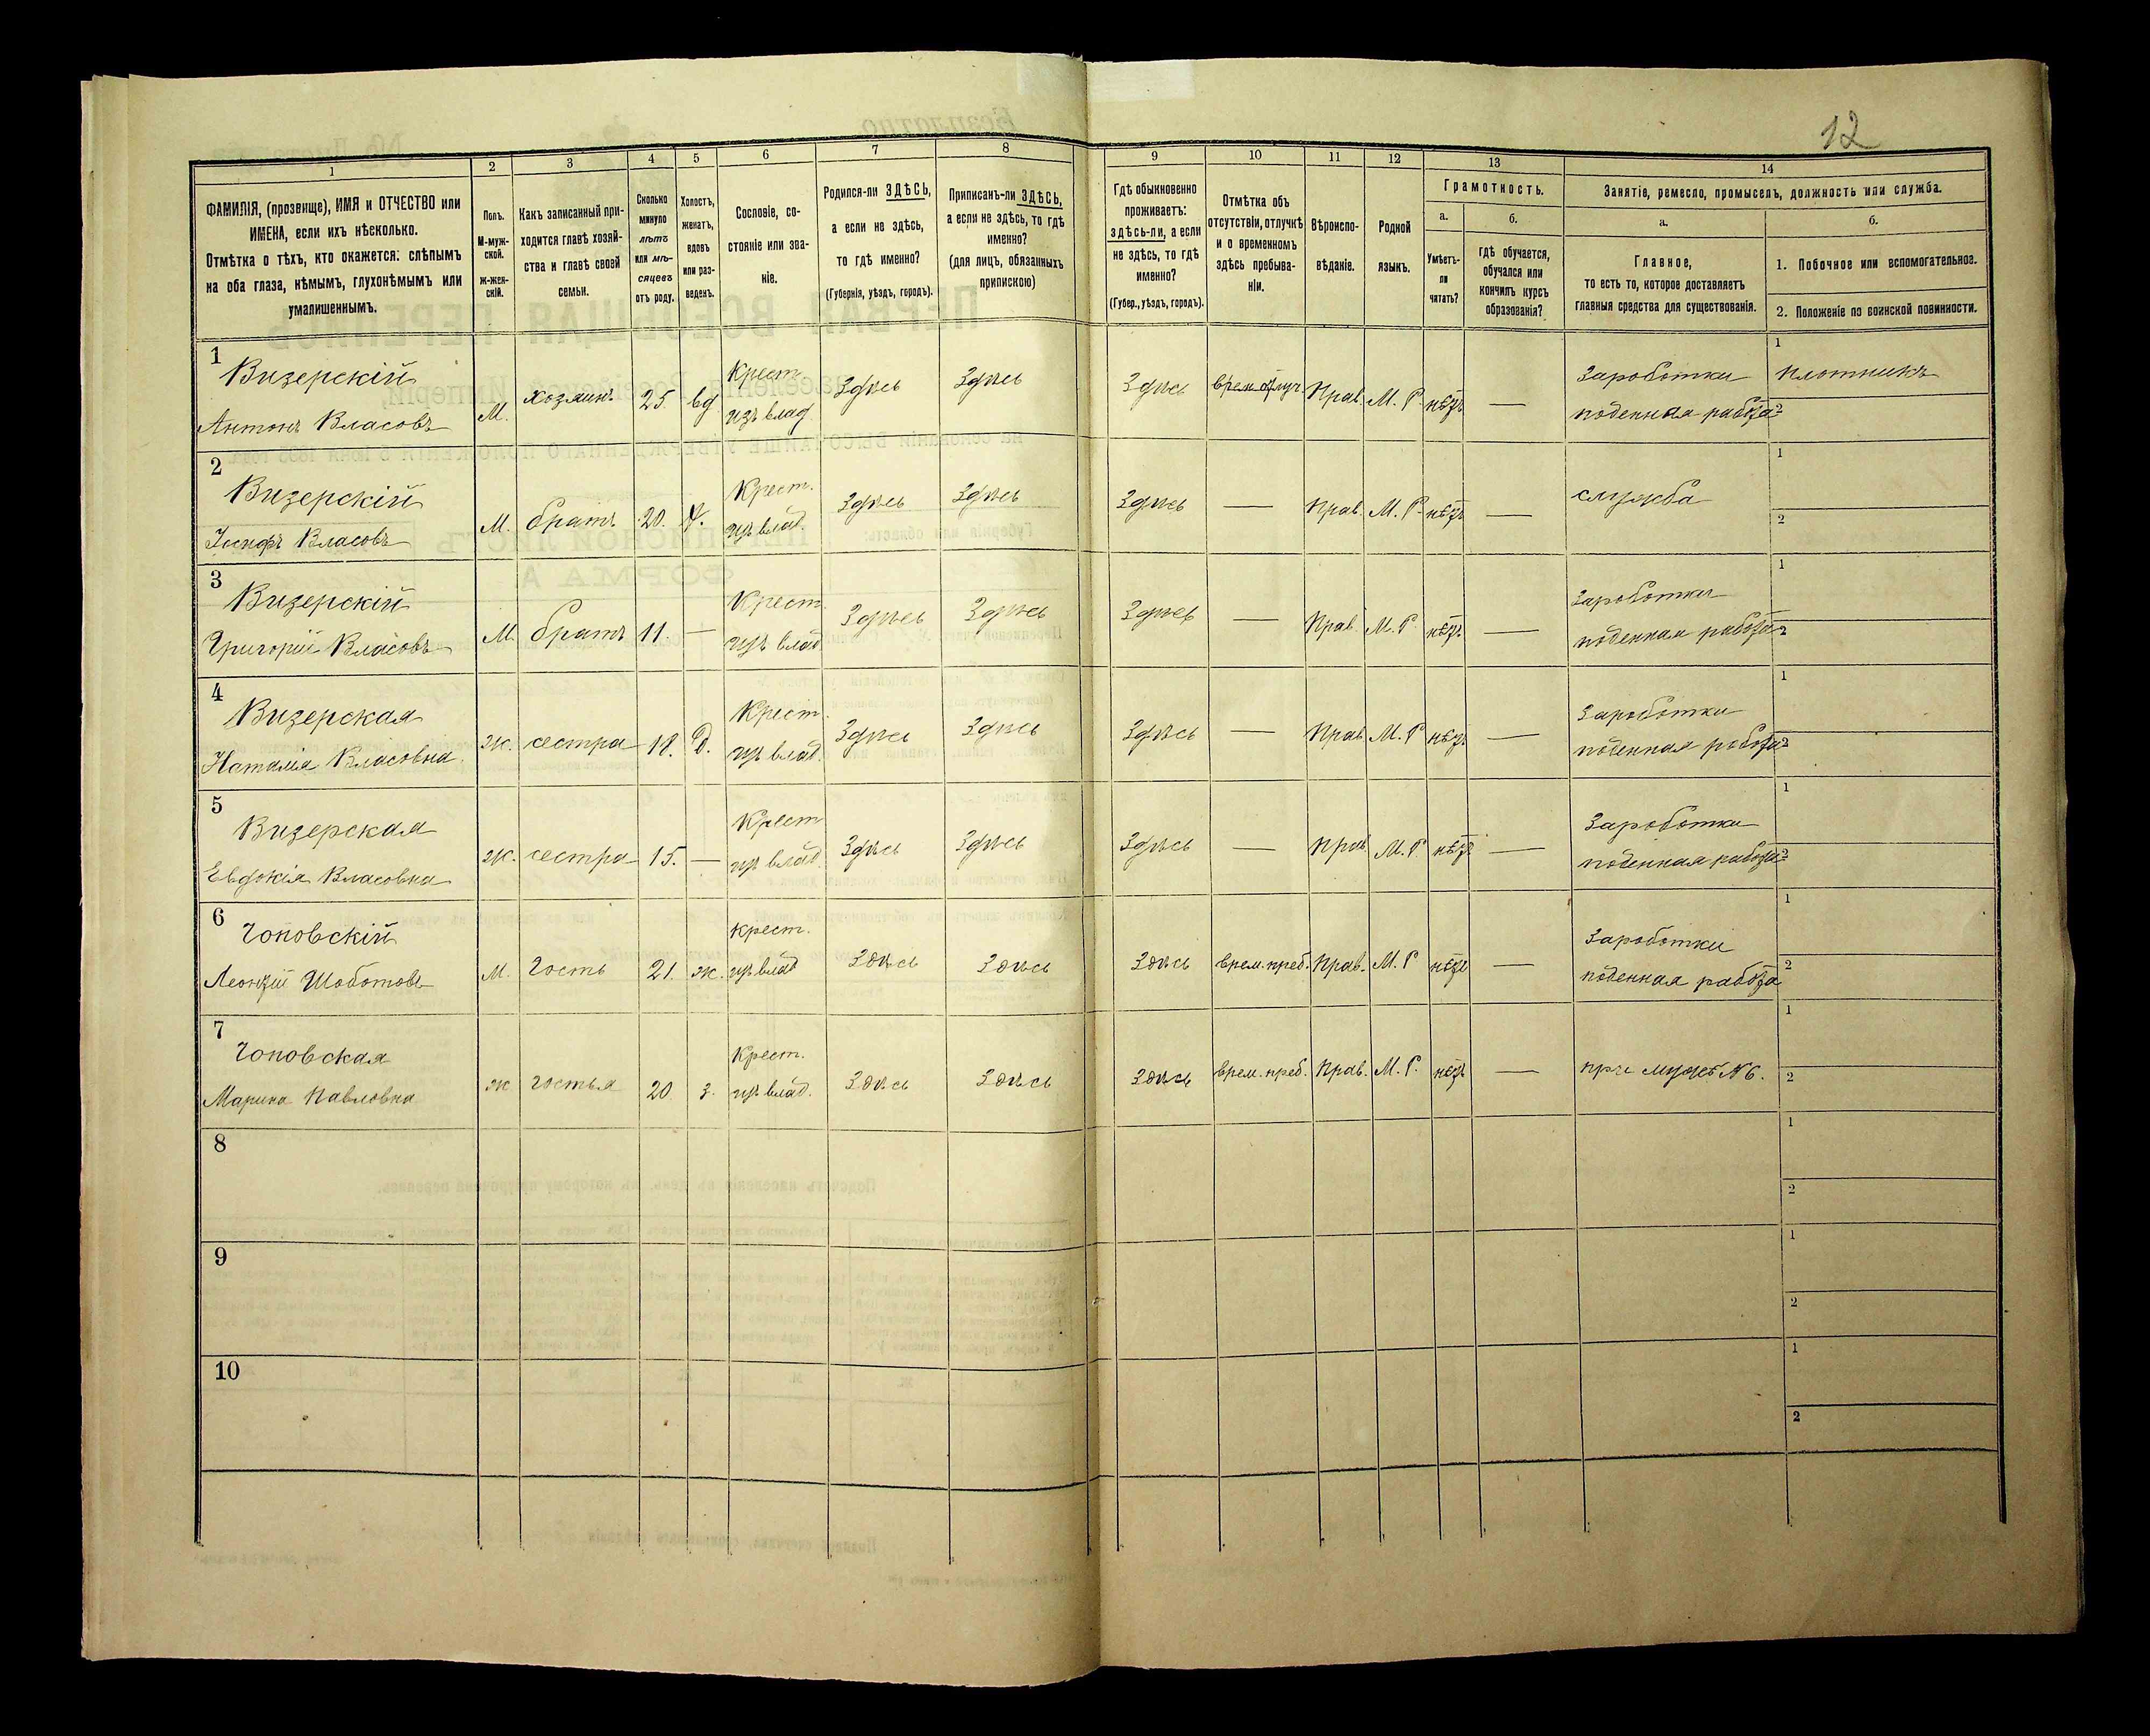 12
1 2 3 4 5 6 7 8 9 10 11 12 13 14
ФАМИЛІЯ, (прозвище), ИМЯ и ОТЧЕСТВО или
ИМЕНА, если ихъ нѣсколько.
Отмѣтка о тѣхъ, кто окажется: слѣпымъ
на оба глаза, нѣмымъ, глухонѣмымъ или
умалишеннымъ.
Полъ.
М-муж-
ской.
Ж-жен-
скій.
Какъ записанный при-
ходится главѣ хозяй-
ства и главѣ своей
семьи.
Сколько
минуло
лѣтъ
или мѣ-
сяцевъ
отъ роду.
Холостъ,
женатъ,
вдовъ
или раз-
веденъ.
Сословіе, со-
стояніе или зва-
ніе.
Родился-ли ЗДѢСЬ,
а если не здѣсь,
то гдѣ именно?
(Губернія, уѣздъ, городъ).
Приписанъ-ли ЗДѢСЬ,
а если не здѣсь, то гдѣ
именно?
(для лицъ, обязанныхъ
припискою)
Гдѣ обыкновенно
проживаетъ:
здѣсь-ли, а если
не здѣсь, то гдѣ
именно?
(Губер., уѣздъ, городъ).
Отмѣтка объ
отсутствіи, отлучкѣ
и о временномъ
здѣсь пребыва-
ніи.
Вѣроиспо-
вѣданіе.
Родной
языкъ.
Грамотность.
а.
Умѣетъ-
ли
читать?
б.
гдѣ обучается,
обучался или
кончилъ курсъ
образованія?
Занятіе, ремесло, промыселъ, должность или служба.
а.
Главное,
то есть то, которое доставляетъ
главныя средства для существованія.
б.
1. Побочное или вспомогательное.
2. Положеніе по воинской повинности.
1
Визерскій Крест. Заработки 1 плотникъ
Антонъ Власовъ М. хозяинъ 25 вд изъ влад. Здѣсь Здѣсь Здѣсь врем. отлуч. Прав. М. Р. нѣтъ — поденная работа 2
2
Визерскій Крест. 1
Іосифъ Власовъ М. братъ 20. Х. изъ влад. Здѣсь Здѣсь Здѣсь — Прав. М. Р. нѣтъ — служба 2
3
Визерскій Крест. Заработки 1
Григорій Власовъ М. братъ 11. — изъ влад. Здѣсь Здѣсь Здѣсь — Прав. М. Р. нѣтъ — поденная работа 2
4
Визерская Крест. Заработки 1
Наталія Власовна ж. сестра 18. Д. изъ влад. Здѣсь Здѣсь Здѣсь — Прав. М. Р. нѣтъ — поденная работа 2
5
Визерская Крест. Заработки 1
Евдокія Власовна ж. сестра 15. — изъ влад. Здѣсь Здѣсь Здѣсь — Прав. М. Р. нѣтъ — поденная работа 2
6
Чоповскій крест. Заработки 1
Леонтій М. Гость 21. ж. изъ влад. Здѣсь Здѣсь Здѣсь врем. преб. Прав. М. Р. нѣтъ — поденная работа 2
7
Чоповская Крест. 1
Марина Павловна ж гостья 20. з. изъ влад. Здѣсь Здѣсь Здѣсь врем. преб. Прав. М. Р. нѣтъ — при мужѣ N6. 2
8 1
2
9 1
2
10 1
2